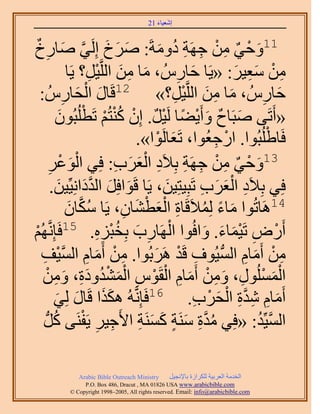 إشعياء 21
11وَحْيٌ مِنْ جِهَةِ دُومَةَ: صَرَخَ إِلَيَّ صَارِخٌ
مِنْ سَعِيرَ: «يَا حَارِسُ، مَا مِنَ اللَّيْلِ؟ يَا
حَارِسُ، مَا مِنَ اللَّيْلِ؟» 12قَالَ الْحَارِسُ:
«أَتَى صَبَاحٌ وَأَيْضًا لَيْلٌ. إِنْ كُنْتُمْ تَطْلُبُونَ
فَاطْلُبُوا. ارْجِعُوا، تَعَالَوْا».
13وَحْيٌ مِنْ جِهَةِ بِلاَدِ الْعَرَبِ: فِي الْوَعْرِ
فِي بِلاَدِ الْعَرَبِ تَبِيتِينَ، يَا قَوَافِلَ الدَّدَانِيِّينَ.
14هَاتُوا مَاءً لِمُلاَقَاةِ الْعَطْشَانِ، يَا سُكَّانَ
أَرْضِ تَيْمَاءَ. وَافُوا الْهَارِبَ بِخُبْزِهِ. 15فَإِنَّهُمْ
مِنْ أَمَامِ السُّيُوفِ قَدْ هَرَبُوا. مِنْ أَمَامِ السَّيْفِ
الْمَسْلُولِ، وَمِنْ أَمَامِ الْقَوْسِ الْمَشْدُودَةِ، وَمِنْ
أَمَامِ شِدَّةِ الْحَرْبِ. 16فَإِنَّهُ هكَذَا قَالَ لِيَ
السَّيِّدُ: «فِي مُدَّةِ سَنَةٍ كَسَنَةِ الأَجِيرِ يَفْنَى كُلُّ
الخدمة العربية للكرازة بالإنجيل Arabic Bible Outreach Ministry
P.O. Box 486, Dracut , MA 01826 USA www.arabicbible.com
© Copyright 1998–2005, All rights reserved. Email: info@arabicbible.com